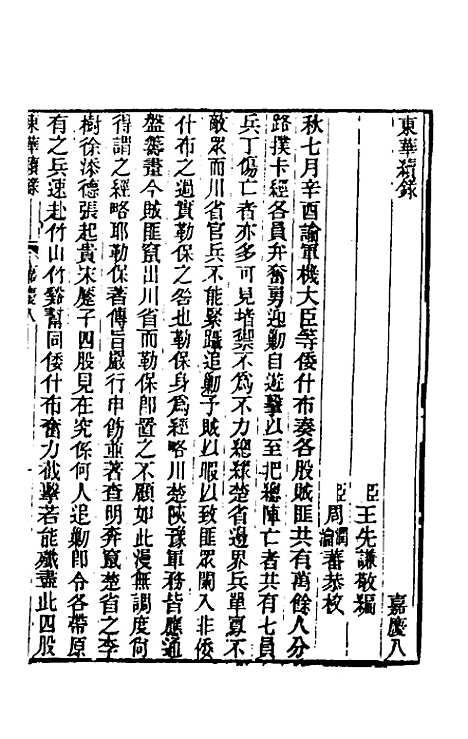 東華續錄
嘉慶八
臣王先謙敬編
臣周潤蕃周瀹蕃恭校
秋七月辛酉諭軍機大臣等倭什布奏各股賊匪共有萬餘人分
路撲卡經各員弁奮勇迎勦自遊擊以至把總陣亡者共有七員
兵丁傷亡者亦多可見堵禦不為不力總緣楚省邊界兵單寡不
敵眾而川省官兵不能緊躡追勦予賊以暇以致匪眾闌入非倭
什布之過實勒保之咎也勒保身為經略川楚陝豫軍務皆應通
盤籌畫今賊匪竄出川省而勒保卽置之不顧如此漫無調度何
得謂之經略耶勒保著傳旨嚴行申飭並著查明奔竄楚省之李
樹徐添德張起貴宋麻子四股見在究係何人追勦卽令各帶原
有之兵速赴竹山竹谿幫同倭什布奮力截擊若能殲盡此四股
東華續錄
嘉慶八